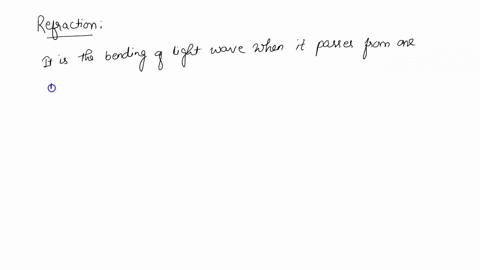 Refraction:
It is the bending of light wave when it passes from one